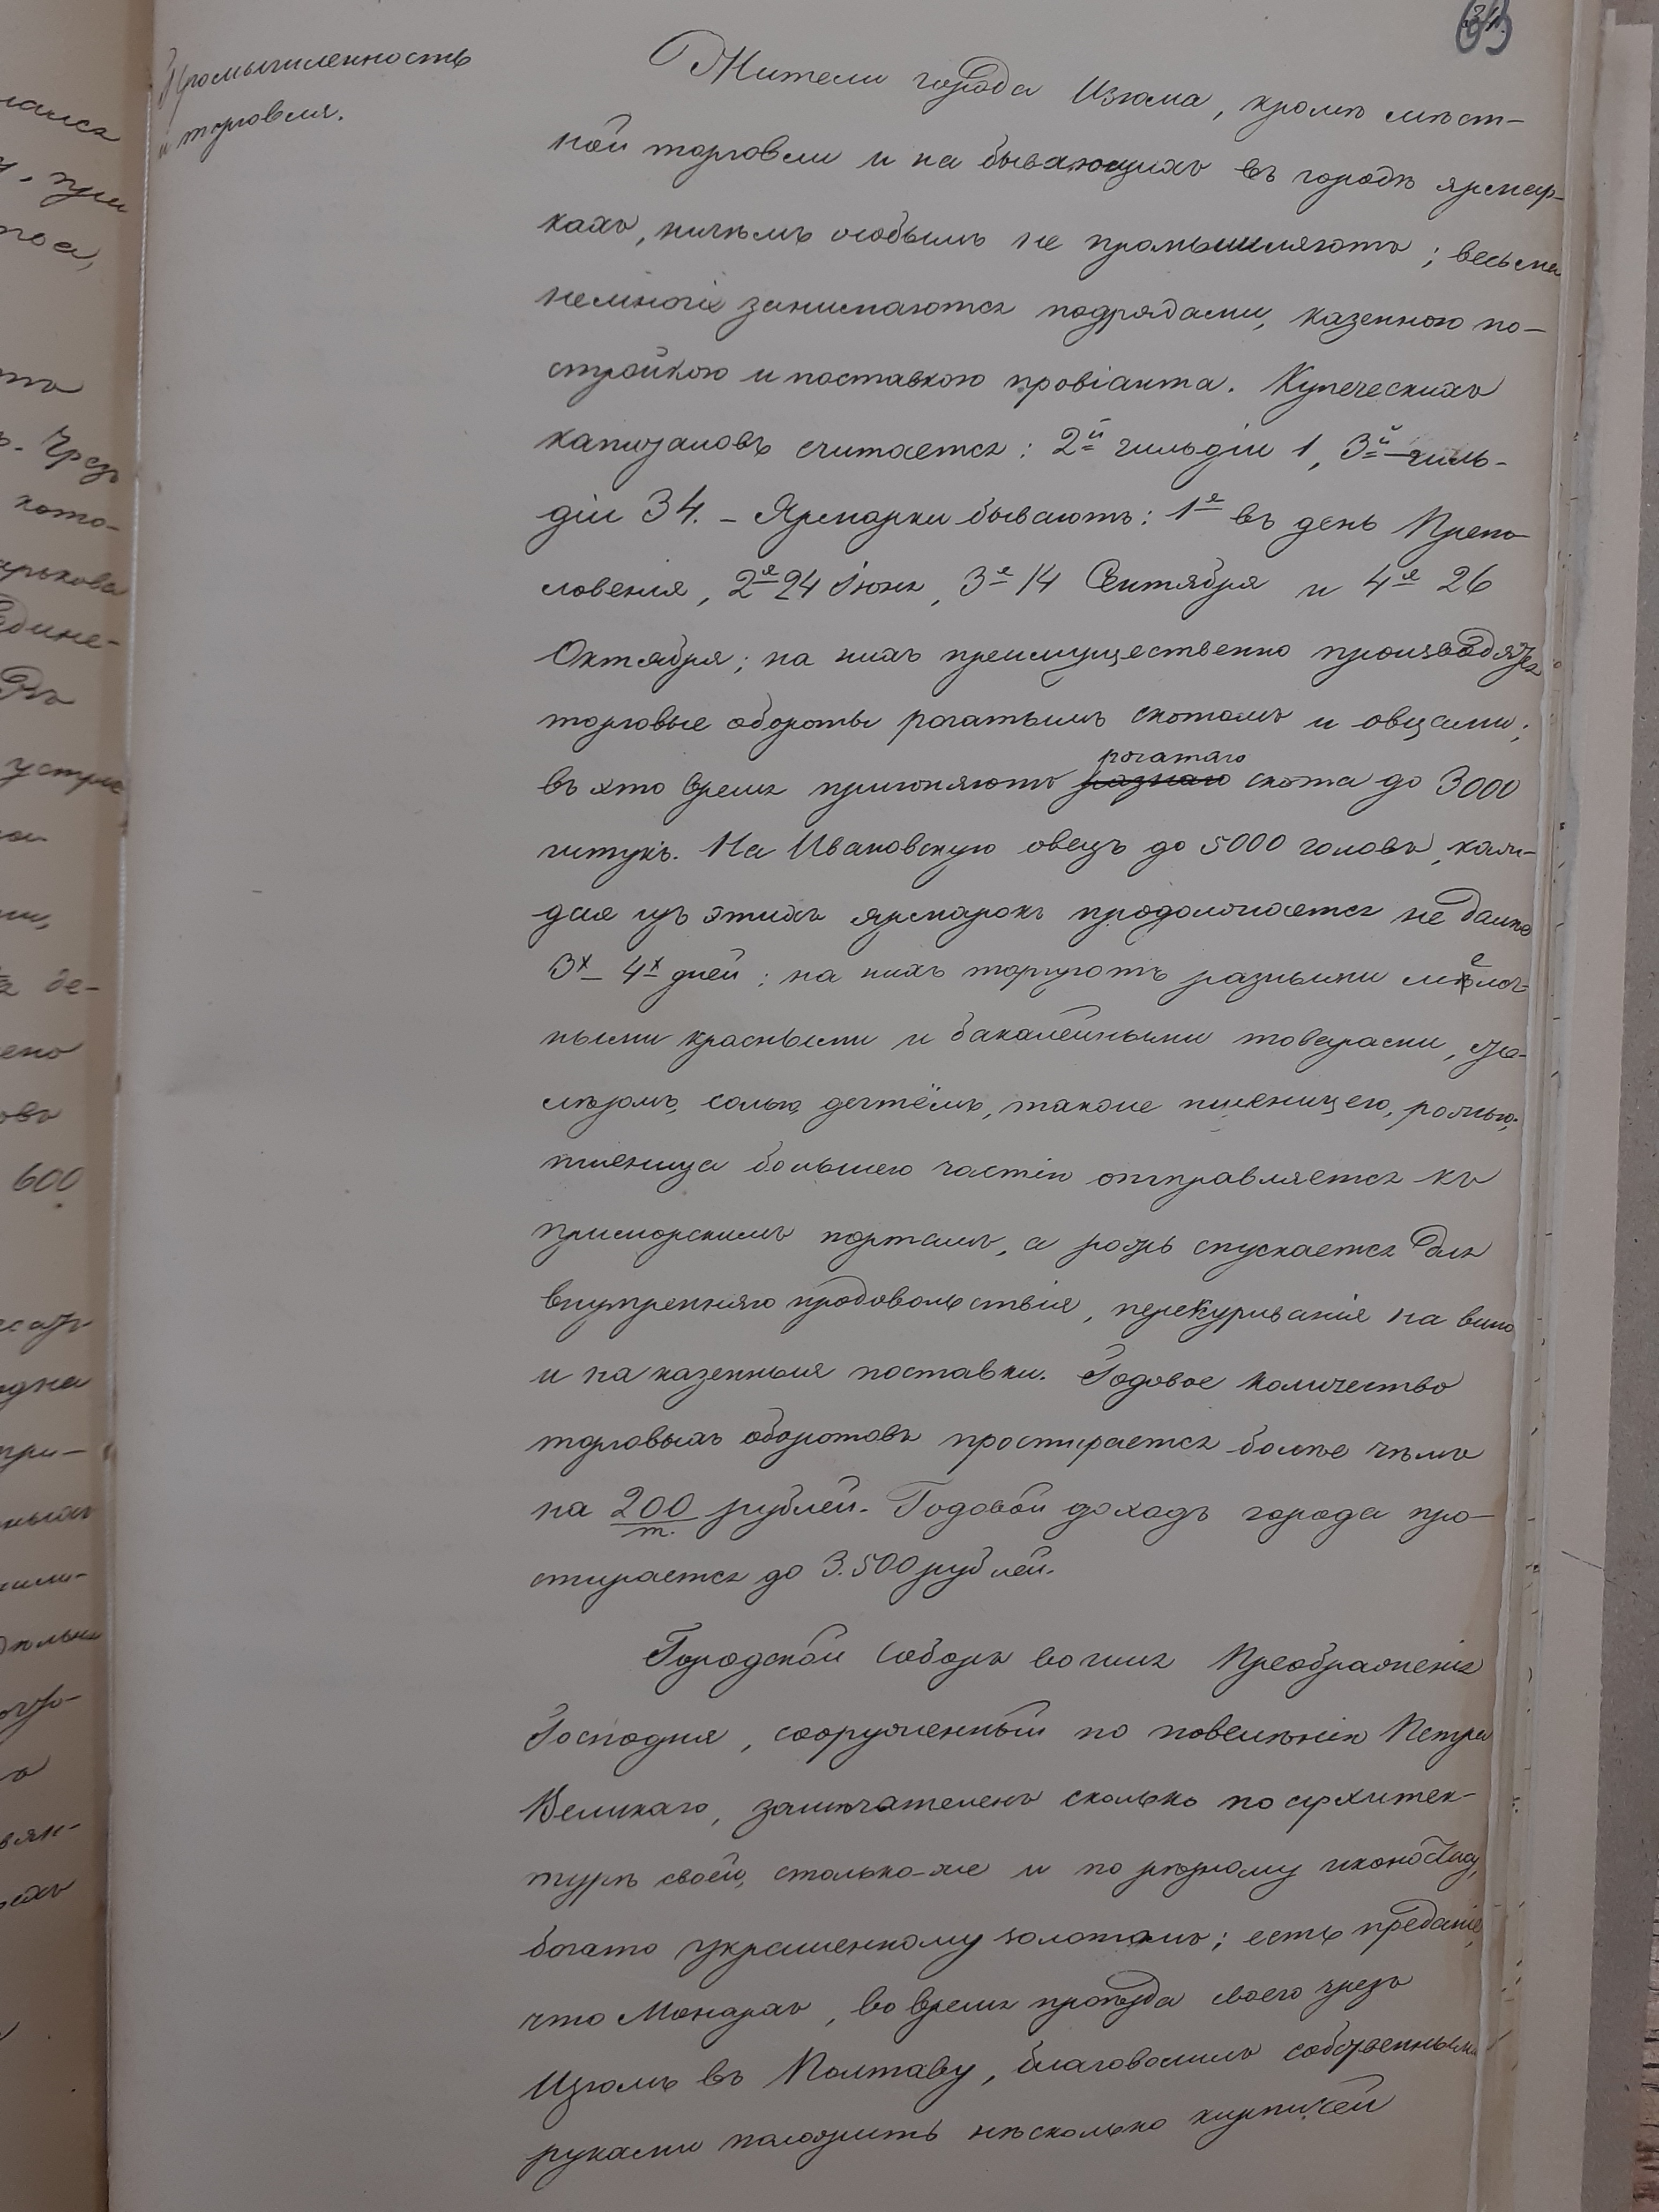 Промышленность
и торговля.
Жители города Изюма, кромѣ мѣст-
ной торговли и на бывающихъ въ городѣ ярмар-
кахъ, ничѣмъ особымъ не промышляютъ; весьма
немногіе занимаются подрядами, казенною по-
стройкою и поставкою провіанта. Купеческихъ
капиталовъ считается: 2й гильдіи 1, 3й гиль-
діи 34. – Ярмарки бывають: 1я въ день Препо-
ловенія, 2я 24 Іюня, 3я 14 Сентября и 4я 26
Октября; на нихъ преимущественно производятся
торговые обороты рогатымъ скотомъ и овцами;
рогатаго
въ это время пригоняютъ разнаго скота до 3000
штукъ. На Ивановскую овецъ до 5000 головъ, каж-
дая изъ этихъ ярмарокъ продолжается не далѣе
3х – 4х дней; на нихъ торгуютъ разными мелоч-
ными красными и бакалейными товарами, же-
лѣзомъ, солью, дегтёмъ, также пшеницею, рожью;
пшеница большею частію отправляется къ
приморскимъ портамъ, а рожь спускается для
внутренняго продовольствія, перекуриванія на вино
и на казенныя поставки. Годовое количество
торговыхъ оборотовъ простирается болѣе чѣмъ
на 200 рублей. Годовой доходъ города про-
т.
стирается до 3.500 рублей.
Городской Соборъ во имя Преображенія
Господня, сооруженный по повелѣнію Петра
Великаго, замѣчателенъ сколько по архитек-
турѣ своей, столько-же и по рѣзному иконостасу,
богато украшенному золотомъ; есть преданіе,
что Монархъ, во время проѣзда своего чрезъ
Изюмъ въ Полтаву, благоволилъ собственными
руками положить нѣсколько кирпичей